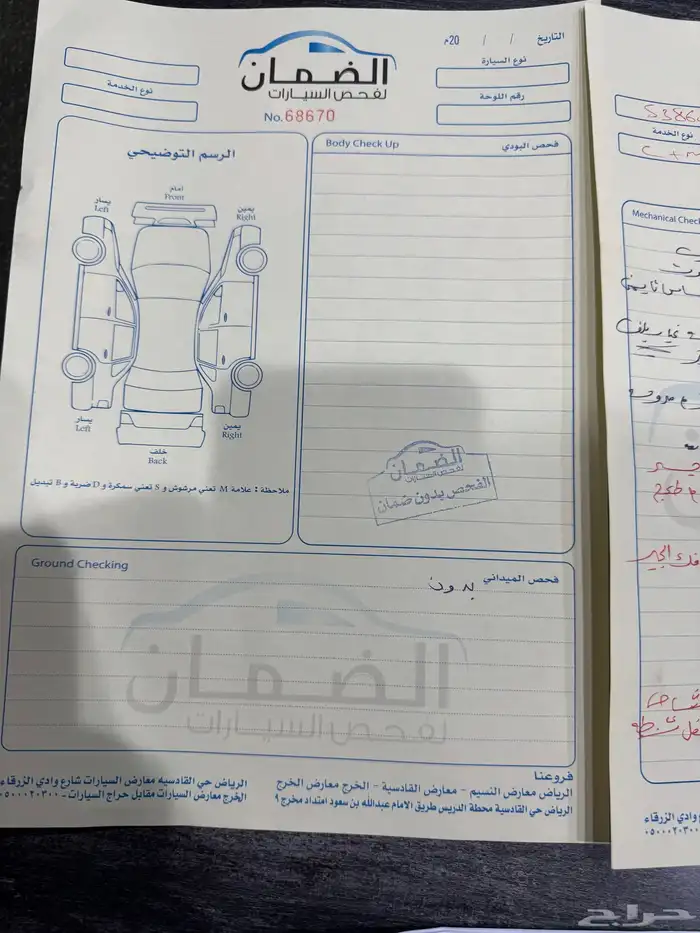 التاريخ / / 20م
الضمان
لفحص السيارات
No.68670
نوع السيارة
رقم اللوحة
نوع الخدمة
الرسم التوضيحي
أمام
Front
يسار
Left
يمين
Right
يسار
Left
يمين
Right
خلف
Back
ملاحظة : علامة M تعني مرشوش و S تعني سمكرة و D ضربة و B تبديل
Body Check Up
فحص البودي
الضمان
لفحص السيارات
الفحص بدون ضمان
Ground Checking
فحص الميداني
بدون
الضمان
لفحص السيارات
فروعنا
الرياض معارض النسيم - معارض القادسية - الخرج معارض الخرج
الرياض حي القادسية محطة الدريس طريق الامام عبدالله بن سعود امتداد مخرج ٩
الرياض حي القادسيه معارض السيارات شارع وادي الزرقاء
الخرج معارض السيارات مقابل حراج السيارات - ٠٥٠٠٠٢٠٣٠٠
نوع الخدمة
Mechanical Check
فك الجير
وادي الزرقاء
٠٥٠٠٠٢٠٣٠٠
حراج